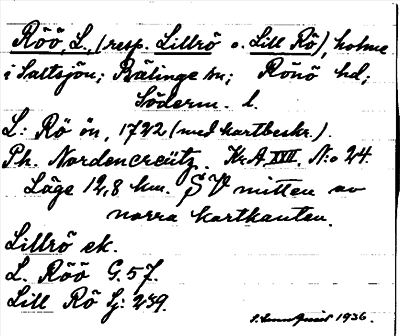 Röö, L., (resp. Lillrö o. Lill Rö), holme
i Saltsjön; Bälinge sn; Rönö hd;
Söderm. l.
L: Rö ön, 1722 (med kartbeskr.).
Ph. Nordencreütz. Kr.A XVII, N:o 24.
Läge 12,8 km. SV mitten av
norra kartkanten.
Lillrö ek.
L. Röö G. 57.
Lill Rö Sj: 239.
1936.